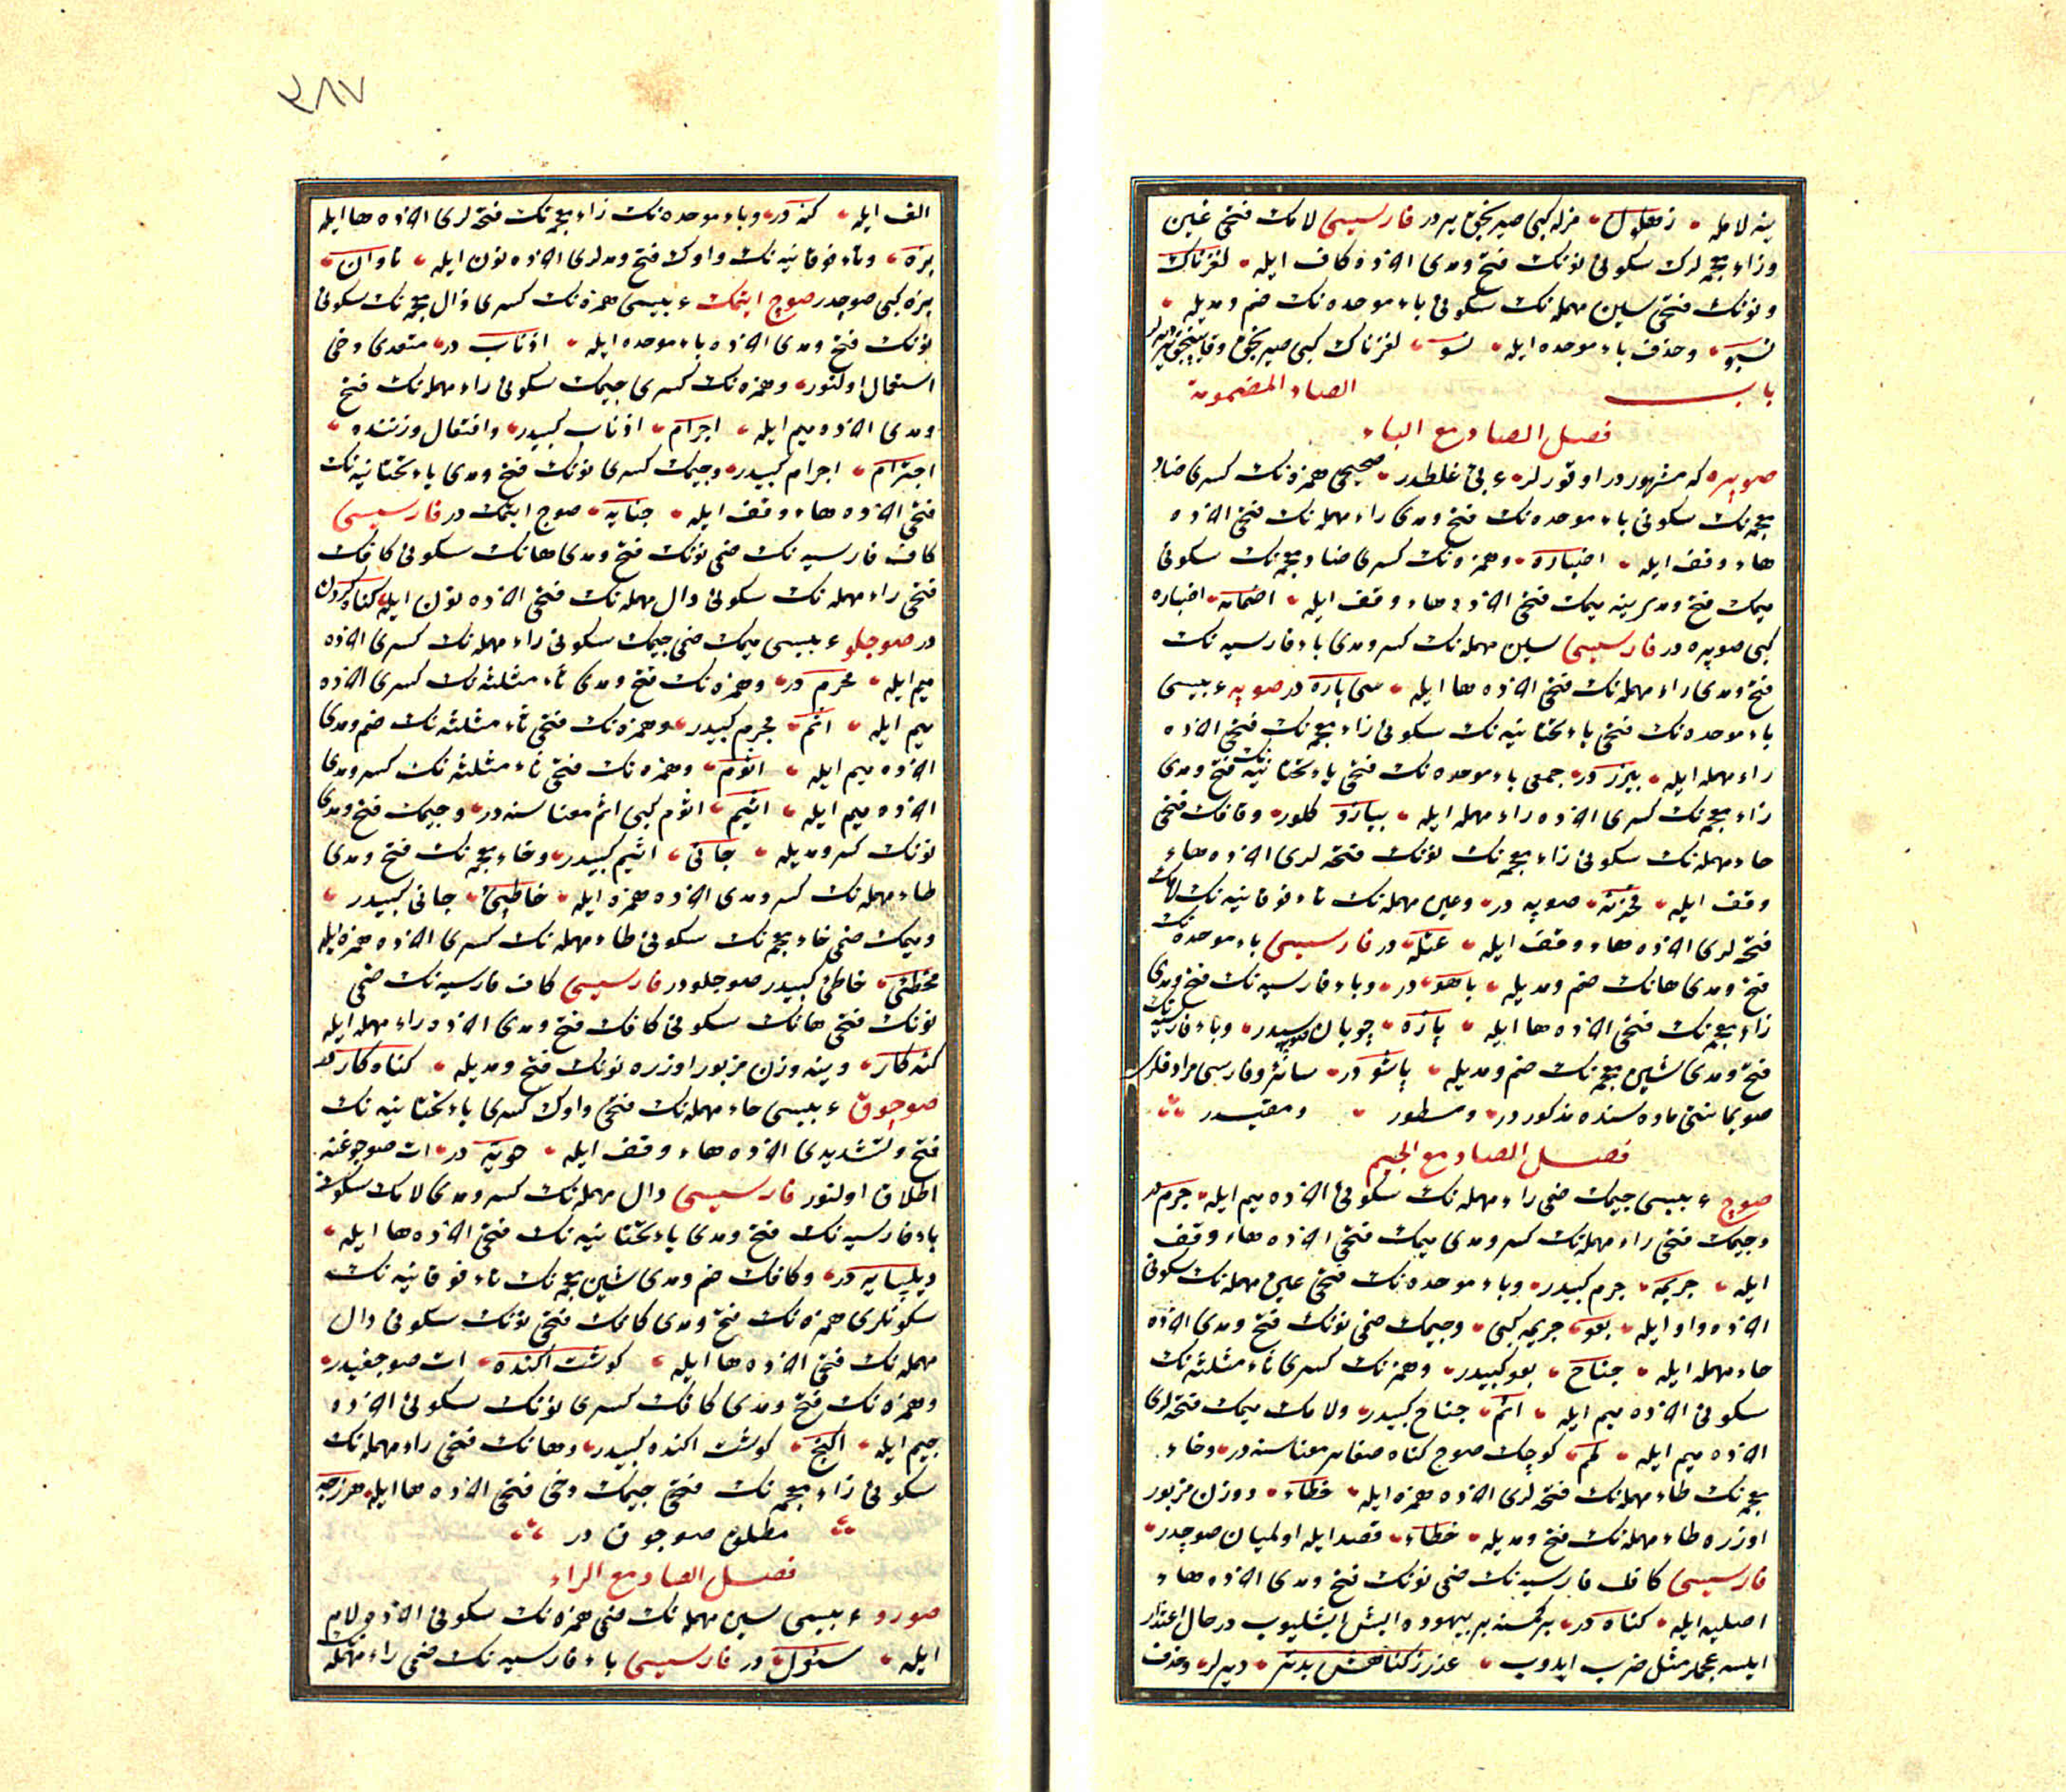 ينه لامله زهلول مزله كبى صيريجق ير در فارسيسى لامك فتحى غين
وزاء معجمه لرك سكونى نونك فتح ومدى اخرنده كاف ايله لغزناك
ونونك فتحى سين مهمله نك سكونى باء موحده نك ضم ومديله
نسبو وحذف باء موحده ايله نسو لغزناك كبى صيريجق
باب الصاد المضمومة
فصل الصاد مع الباء
صوپره كه مشهور در اوقورلر عربى غلطدر صحيحى همزه نك كسرى ضاد
معجمه نك سكونى باء موحده نك فتح ومدى راء مهمله نك فتحى اخرنده
هاء وقف ايله اضباره وهمزه نك كسرى ضاد معجمه نك سكونى
ميمك فتح ومدى ينه ميمك فتحى اخرنده هاء وقف ايله اضمامه اضباره
كبى صوپره در فارسيسى سين مهمله نك كسر ومدى باء فارسيه نك
فتح ومدى راء مهمله نك فتحى اخرنده ها ايله سى پاره در صوپه عربيسى
باء موحده نك فتحى ياء تحتانيه نك سكونى زاء معجمه نك فتحى اخرنده
راء مهمله ايله بيزر در جمعى باء موحده نك فتحى ياء تحتانيه نك فتح ومدى
زاء معجمه نك كسرى اخرنده راء مهمله ايله بيازر كلور وقافك فتحى
حاء مهمله نك سكونى زاء معجمه نك نونك فتحه لرى اخرنده هاء
وقف ايله قحزنه صوپه در وعين مهمله نك تاء فوقانيه نك لامك
فتحه لرى اخرنده هاء وقف ايله عتله در فارسيسى باء موحده نك
فتح ومدى هانك ضم ومديله باهو در وباء فارسيه نك فتح ومدى
زاء معجمه نك فتحى اخرنده ها ايله پازه چوبان صوپه سيدر وباء فارسيه نك
فتح ومدى شين معجمه نك ضم ومديله پاشو در سائر وفارسى مرادفلرى
صويمانمنى ماده سنده مذكور در ومسطور ومقيد در
فصل الصاد مع الجيم
صوج عربيسى جيمك ضمى راء مهمله نك سكونى اخرنده ميم ايله جرم در
وجيمك فتحى راء مهمله نك كسر ومدى ميمك فتحى اخرنده هاء وقف
ايله جريمه جرم كبيدر وباء موحده نك فتحى عين مهمله نك سكونى
اخرنده واو ايله بعو جريمه كبى وجيمك ضمى نونك فتح ومدى اخرنده
حاء مهمله ايله جناح بعو كبيدر وهمزه نك كسرى ثاء مثلثه نك
سكونى اخرنده ميم ايله اثم جناح كبيدر ولامك ميمك فتحه لرى
اخرنده ميم ايله لمم كوچك صوج كناه صغاير معناسنه در وخاء
معجمه نك طاء مهمله نك فتحه لرى اخرنده همزه ايله خطأ ووزن مزبور
اوزره طاء مهمله نك فتح ومديله خطاء قصد ايله اولميان صوچدر
فارسيسى كاف فارسيه نك ضمى نونك فتح ومدى اخرنده هاء
اصليه ايله كناه در بر كمسنه بر بيهوده ايش ايشليوب در حال اعتذار
ايلسه عجملر مثل ضرب ايدوب عذر ز كناهش بدتر ديرلر وحذف
٢٨٧
الف ايله كنه در وباء موحده نك زاء معجمه نك فتحه لرى اخرنده ها ايله
بزه وتاء فوقانيه نك واوك فتح ومدلرى اخرنده نون ايله تاوان
بزه كبى صوچدر صوج ايتمك عربيسى همزه نك كسرى ذال معجمه نك سكونى
نونك فتح ومدى اخرنده باء موحده ايله اذناب در متعدى دخى
استعمال اولنور وهمزه نك كسرى جيمك سكونى راء مهمله نك فتح
ومدى اخرنده ميم ايله اجرام اذناب كبيدر وافتعال وزننده
اجترام اجرام كبيدر وجيمك كسرى نونك فتح ومدى ياء تحتانيه نك
فتحى اخرنده هاء وقف ايله جنايه صوج ايتمك در فارسيسى
كاف فارسيه نك ضمى نونك فتح ومدى هانك سكونى كافك
فتحى راء مهمله نك سكونى دال مهمله نك فتحى اخرنده نون ايله كناه كردن
در صوجلو عربيسى ميمك ضمى جيمك سكونى راء مهمله نك كسرى اخرنده
ميم ايله مجرم در وهمزه نك فتح ومدى ثاء مثلثه نك كسرى اخرنده
ميم ايله آثم مجرم كبيدر وهمزه نك فتحى ثاء مثلثه نك ضم ومدى
اخرنده ميم ايله اثوم وهمزه نك فتحى ثاء مثلثه نك كسر ومدى
اخرنده ميم ايله اثيم اثوم كبى اثم معناسنه در وجيمك فتح ومدى
نونك كسر ومديله جانى اثيم كبيدر وخاء معجمه نك فتح ومدى
طاء مهمله نك كسر ومدى اخرنده همزه ايله خاطئ جانى كبيدر
وميمك ضمى خاء معجمه نك سكونى طاء مهمله نك كسرى اخرنده همزه ايله
مخطئ خاطئ كبيدر صوجلو در فارسيسى كاف فارسيه نك ضمى
نونك فتحى هانك سكونى كافك فتح ومدى اخرنده راء مهمله ايله
كنه كار وينه وزن مزبور اوزره نونك فتح ومديله كناه كار در
صوجوق عربيسى حاء مهمله نك فتحى واوك كسرى ياء تحتانيه نك
فتح وتشديدى اخرنده هاء وقف ايله حويه در ات صوجوغنه
اطلاق اولنور فارسيسى دال مهمله نك كسر ومدى لامك سكونى
باء فارسيه نك فتح ومدى ياء تحتانيه نك فتحى اخرنده ها ايله
ديلپايه در وكافك ضم ومدى شين معجمه نك تاء فوقانيه نك
سكونلرى همزه نك فتح ومدى كافك فتحى نونك سكونى دال
مهمله نك فتحى اخرنده ها ايله كوشت آكنده ات صوجغيدر
وهمزه نك فتح ومدى كافك كسرى نونك سكونى اخرنده
جيم ايله آكنج كوشت اكنده كبيدر وهانك فتحى راء مهمله نك
سكونى زاء معجمه نك فتحى جيمك دخى فتحى اخرنده ها ايله هرزجه
مطلق صوجوق در
فصل الصاد مع الراء
صورو عربيسى سين مهمله نك ضمى همزه نك سكونى اخرنده لام
ايله سئول در فارسيسى باء فارسيه نك ضمى راء مهمله نك